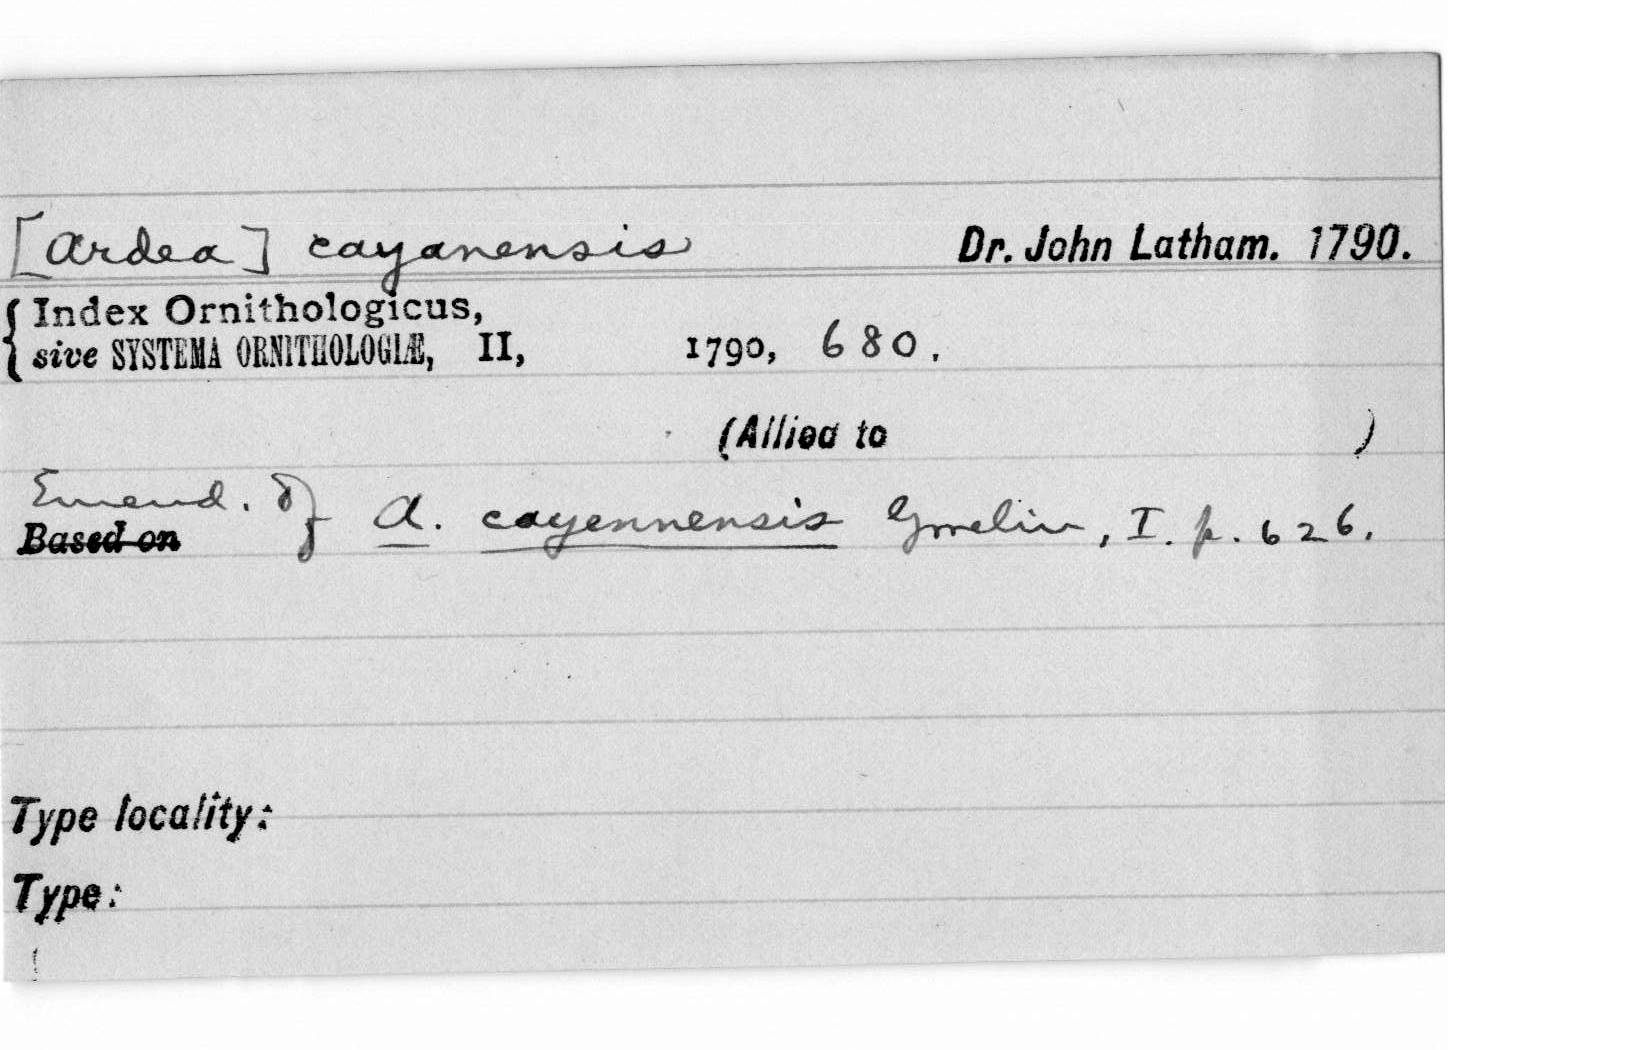 [Ardea] cayanensis Dr. John Latham. 1790.
{ Index Ornithologicus,
sive SYSTEMA ORNITHOLOGIÆ, II, 1790, 680.
(Allied to )
Emend. of A. cayennensis Gmelin, I. p. 626.
Based on
Type locality:
Type: